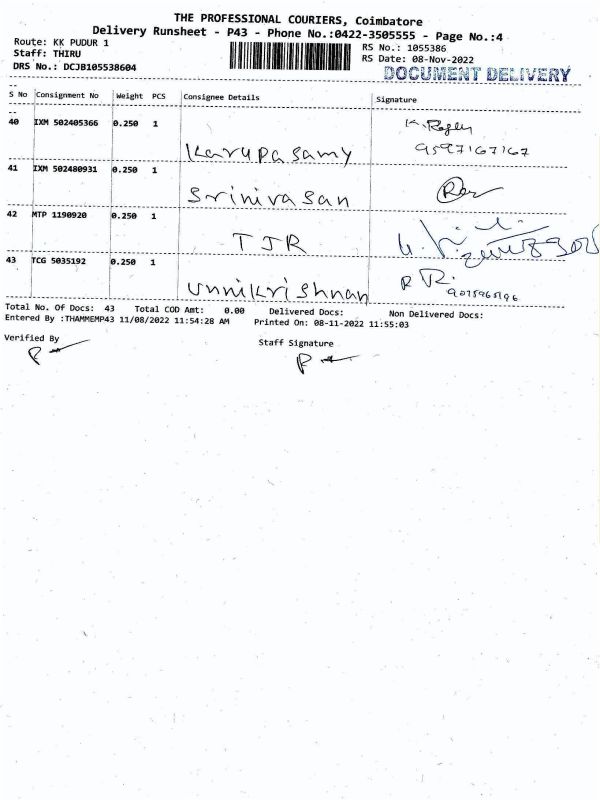 THE PROFESSIONAL COURIERS, Coimbatore
Delivery Runsheet - P43 - Phone No.:0422-3505555 - Page No.:4
Route: KK PUDUR 1
Staff: THIRU
DRS No.: DCJB105538604
RS No.: 1055386
RS Date: 08-Nov-2022
DOCUMENT DELIVERY
S No Consignment No Weight PCS Consignee Details Signature
40 IXM 502405366 0.250 1 Karupasamy
9597167167
41 IXM 502480931 0.250 1 Srinivasan
42 MTP 1190920 0.250 1 TJR
43 TCG 5035192 0.250 1 Unnikrishnan
Total No. Of Docs: 43 Total COD Amt: 0.00 Delivered Docs: Non Delivered Docs:
Entered By :THAMMEMP43 11/08/2022 11:54:28 AM Printed On: 08-11-2022 11:55:03
Verified By
Staff Signature